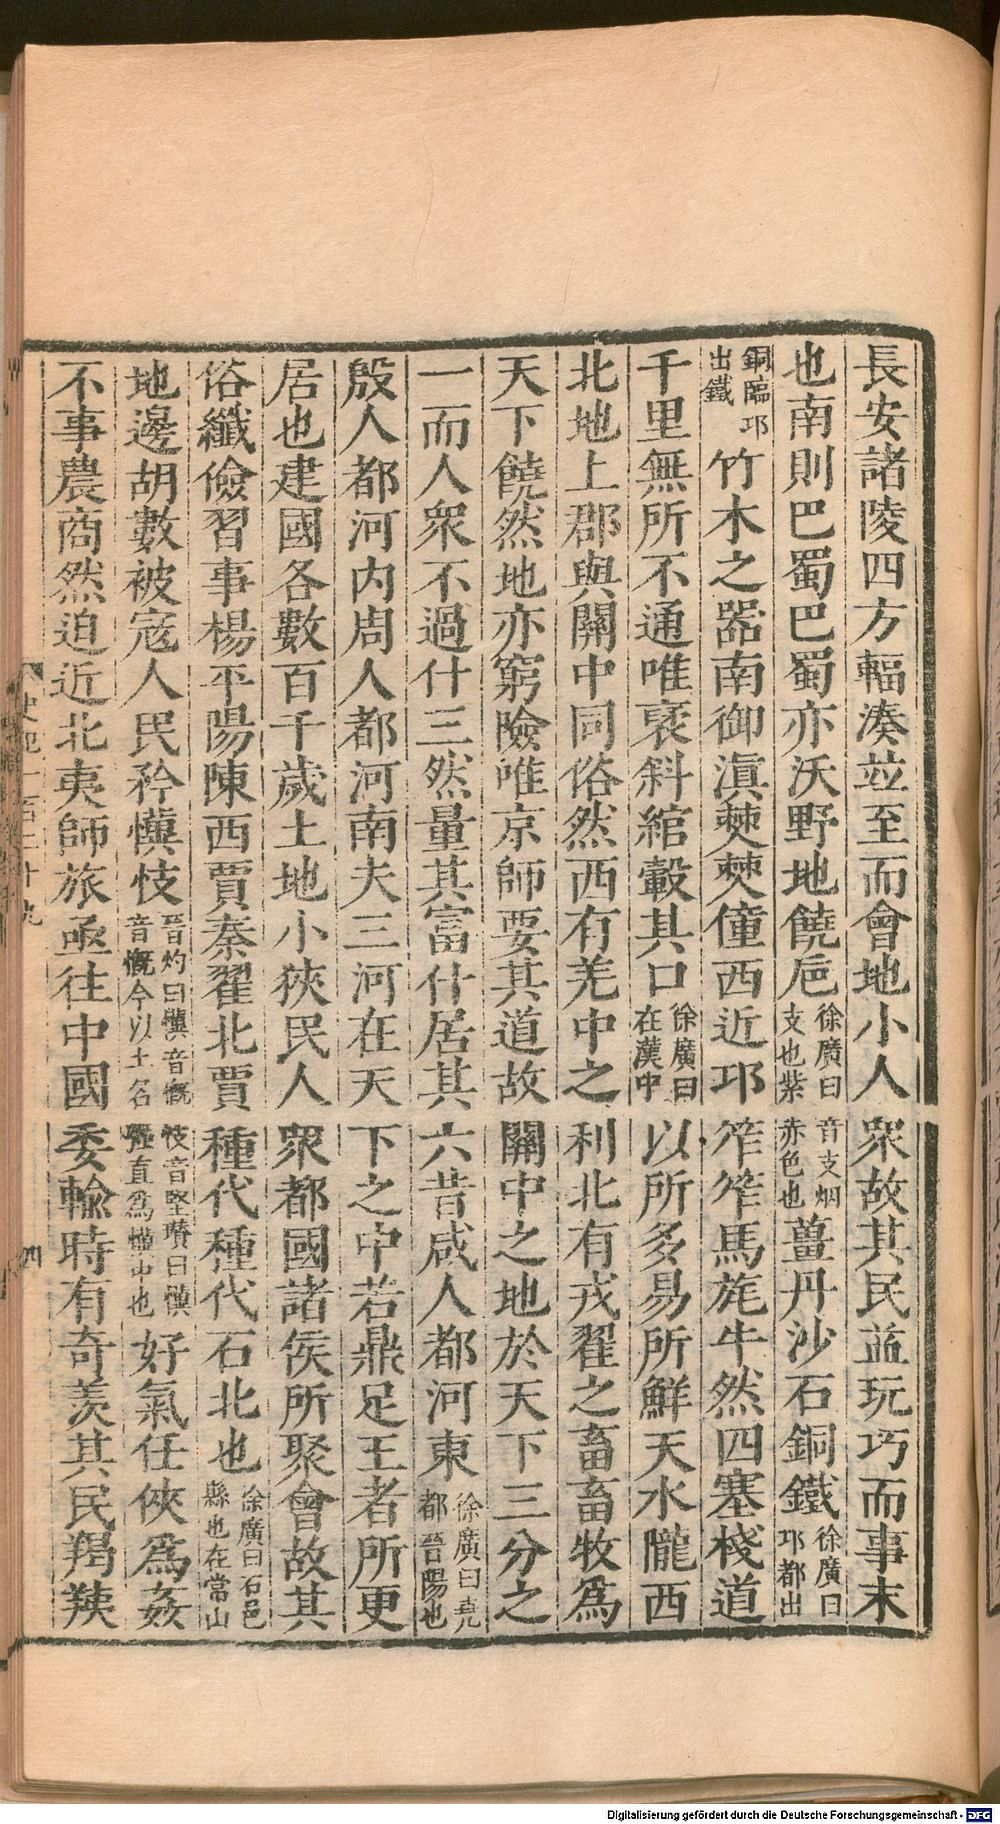 長安諸陵四方輻湊竝至而會地小人衆故其民益玩巧而事末
也南則巴蜀巴蜀亦沃野地饒巵徐廣曰音支烟支也紫赤色也薑丹沙石銅鐵徐廣曰邛都出
銅臨邛出鐵竹木之器南御滇僰僰僮西近邛筰筰馬旄牛然四塞棧道
千里無所不通唯裹斜綰轂其口徐廣曰在漢中以所多易所鮮天水隴西
北地上郡與關中同俗然西有羌中之利北有戎翟之畜畜牧爲
天下饒然地亦窮險唯京師要其道故關中之地於天下三分之
一而人衆不過什三然量其富什居其六昔咸人都河東徐廣曰堯都晉陽也
殷人都河內周人都河南夫三河在天下之中若鼎足王者所更
居也建國各數百千歲土地小狹民人衆都國諸侯所聚會故其
俗纖儉習事楊平陽陳西賈秦翟北賈種代種代石北也徐廣曰石邑縣也在常山
地邊胡數被寇人民矜懻忮晉灼曰懻音慨忮音堅瓚曰懻音慨今以土名彊直爲懻中也好氣任俠爲姦
不事農商然迫近北夷師旅亟往中國委輸時有奇羨其民羯羠
史記一百二十九
四
Digitalisierung gefördert durch die Deutsche Forschungsgemeinschaft - DFG